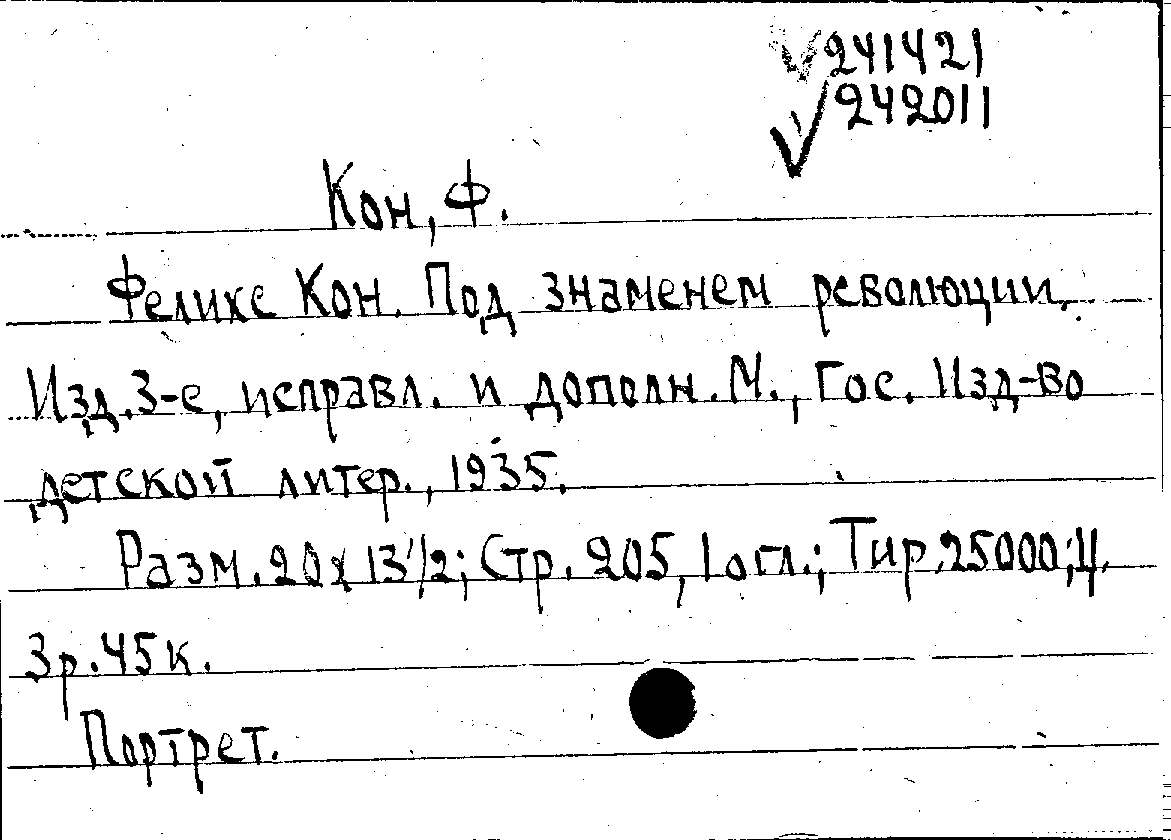 √241421
√242011
Кон, Ф.
Феликс Кон. Под знаменем революции.
Изд. 3-е, исправл. и дополн. М., Гос. Изд-во
детской литер., 1935.
Разм. 20x13 1/2; Стр. 205, 1 огл.; Тир. 25000; Ц.
3р. 45к.
Портрет.